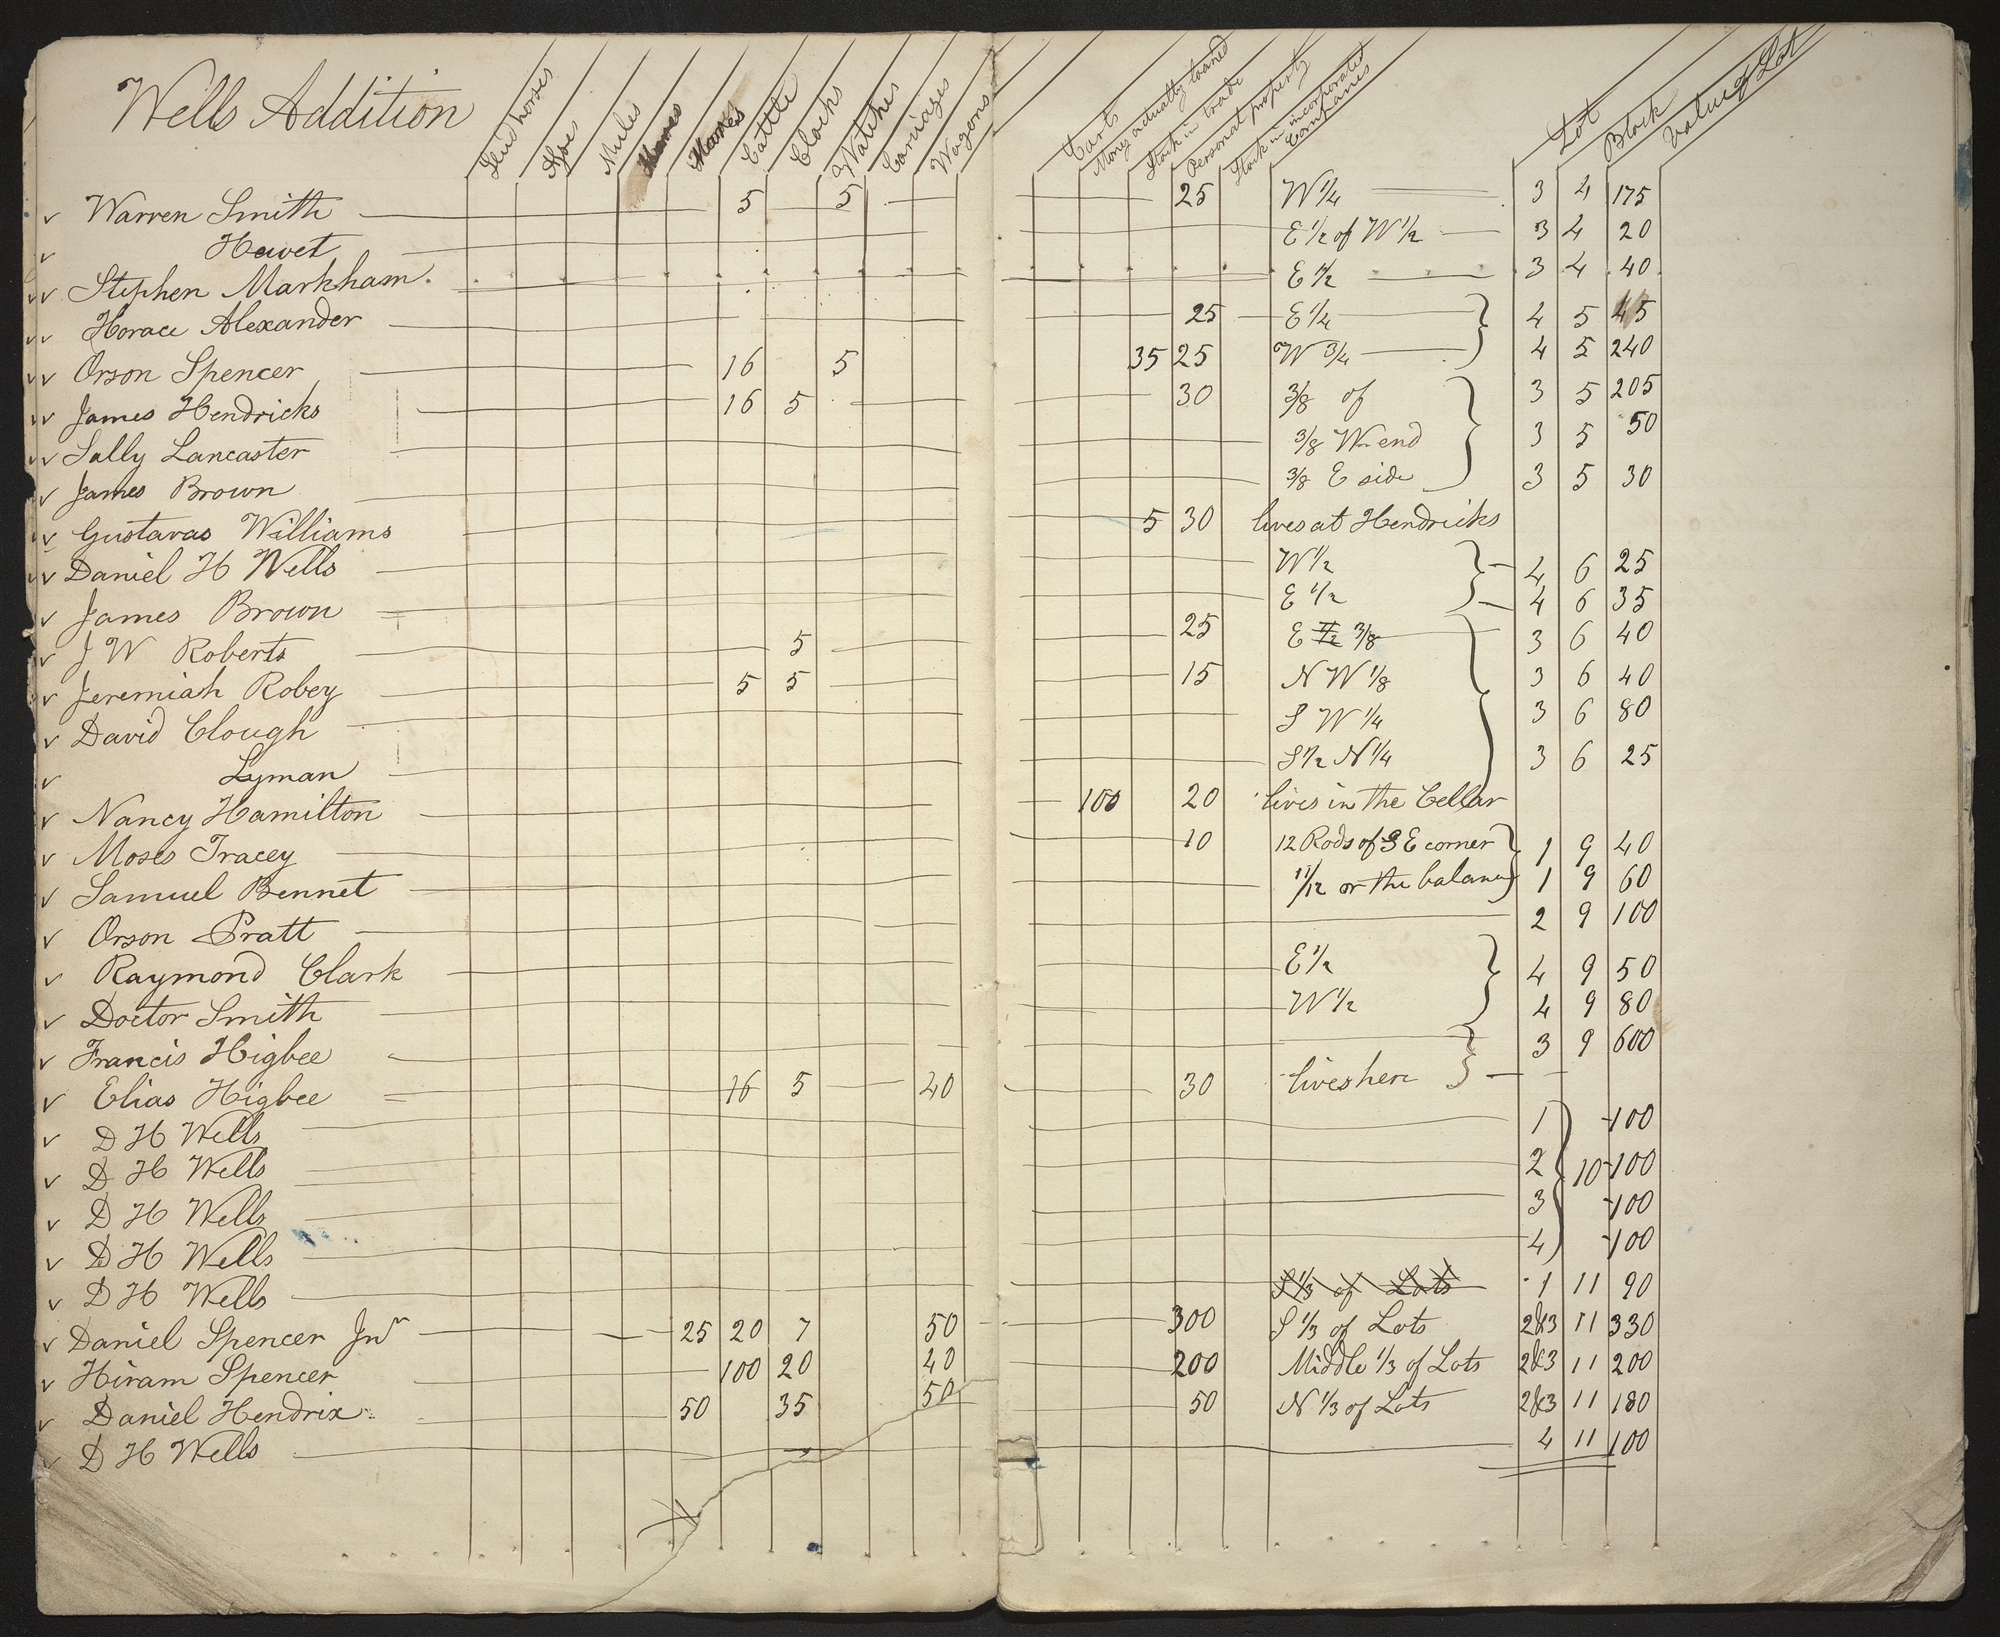 Wells Addition
Studhorses Asses Mules Horses Cattle Clocks Watches Carriages Wagons Carts Money actually loaned Stock in trade Personal property Stock in incorporated Companies Lot Block Value of Lot
v Warren Smith 5 5 25 W 1/4 3 4 175
v Hewet E 1/2 of W 1/2 3 4 20
vv Stephen Markham. E 1/2 3 4 40
vv Horace Alexander 25 E 1/4 4 5 45
vv Orson Spencer 16 5 35 25 W 3/4 4 5 240
vv James Hendricks 16 5 30 3/8 of 3 5 205
vv Sally Lancaster 3/8 W end 3 5 50
v James Brown 3/8 E side 3 5 30
vv Gustavas Williams 5 30 lives at Hendricks
vv Daniel H Wells W 1/2 4 6 25
v James Brown E 1/2 4 6 35
v J W Roberts 5 25 E 1/2 3/8 3 6 40
v Jeremiah Robey 5 5 15 N W 1/8 3 6 40
v David Clough S W 1/4 3 6 80
v Lyman S 1/2 N 1/4 3 6 25
v Nancy Hamilton 100 20 lives in the Cellar
v Moses Tracey 10 12 Rods of S E corner 1 9 40
v Samuel Bennet 11/12 or the balance 1 9 60
v Orson Pratt 2 9 100
v Raymond Clark E 1/2 4 9 50
v Doctor Smith W 1/2 4 9 80
v Francis Higbee 3 9 600
v Elias Higbee 16 5 40 30 lives here
v D H Wells 1 100
v D H Wells 2 10 100
v D H Wells 3 100
v D H Wells 4 100
v D H Wells S 1/3 of Lots 1 11 90
v Daniel Spencer Jnr 25 20 7 50 300 S 1/3 of Lots 2&3 11 330
v Hiram Spencer 100 20 40 200 Middle 1/3 of Lots 2&3 11 200
v Daniel Hendrix 50 35 50 50 N 1/3 of Lots 2&3 11 180
v D H Wells 4 11 100